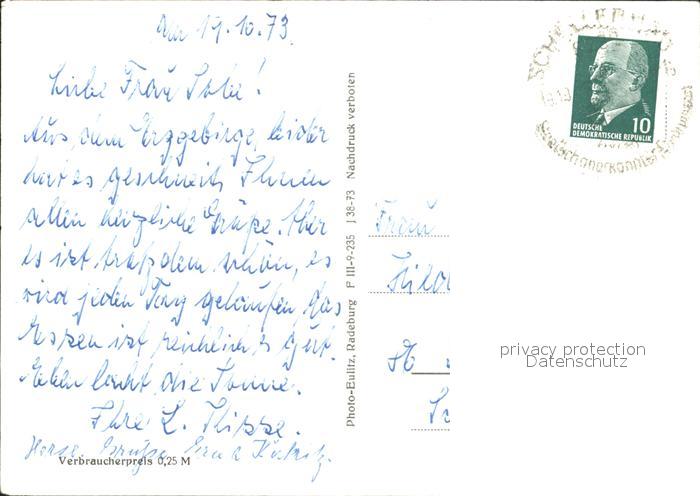 den 19.10.73.
Liebe Frau
Aus dem Erzgebirge, leider
hat es geschneit, Ihnen
allen herzliche Grüße. Aber
es ist trotzdem schön, es
wird jeden Tag gelaufen, das
Essen ist reichlich & gut.
Eben lacht die Sonne.
Ihre L.
Herzl. Grüße
Verbraucherpreis 0,25 M
Photo-Eulitz, Radeburg F III-9-235 J 38-73 Nachdruck verboten
10
DEUTSCHE
DEMOKRATISCHE REPUBLIK
Frau
privacy protection
Datenschutz